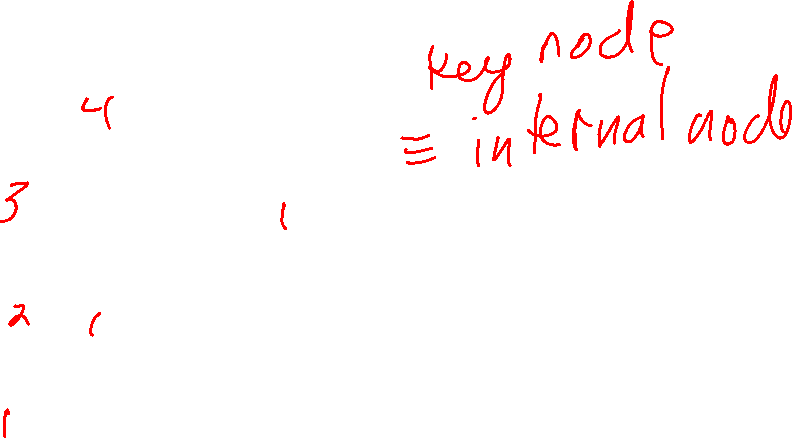 key node
4
≡ internal node
3 1
2 1
1